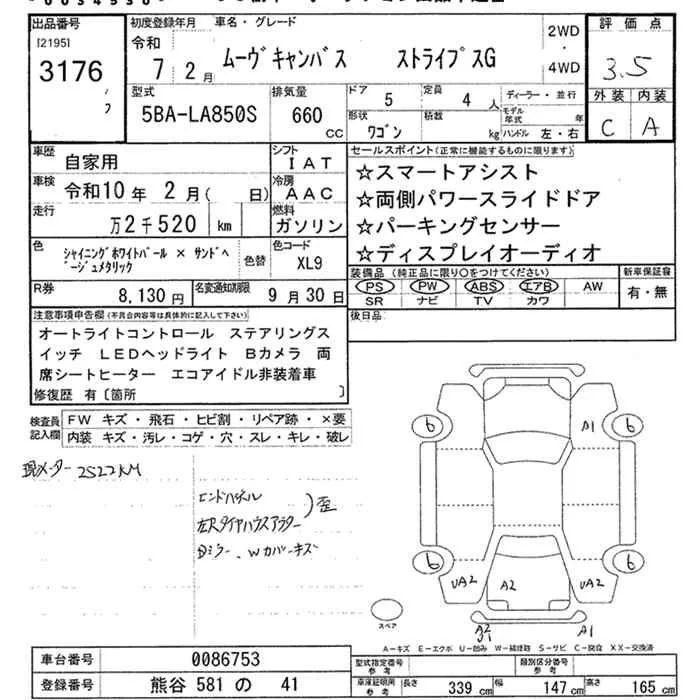 出品番号
[21951]
3176
初度登録年月
令和
7 2月
車名・グレード
ムーヴキャンバス ストライプスG
2WD
・
4WD
評価点
3.5
外装 内装
C A
型式
5BA-LA850S
排気量
660
CC
ドア 5
定員 4 人
ディーラー・並行
形状
ワゴン
積載
kg
モデル年式 年
ハンドル 左・右
車歴 自家用
シフト IAT
車検 令和10年 2月( 日)
冷房 AAC
走行 万2千520 km
燃料 ガソリン
色
シャイニングホワイトパール × サンドベ
ージュメタリック
色替
色コード
XL9
R券 8,130円
名変通知期限 9月30日
セールスポイント(正常に機能するものに限ります)
☆スマートアシスト
☆両側パワースライドドア
☆パーキングセンサー
☆ディスプレイオーディオ
装備品 (純正品に限り○をつけてください)
PS PW ABS エアB AW
SR ナビ TV カワ
新車保証書
有・無
後日品
注意事項申告欄(不具合内容等は具体的に記入して下さい)
オートライトコントロール ステアリングス
イッチ LEDヘッドライト Bカメラ 両
席シートヒーター エコアイドル非装着車
修復歴 有〔箇所 〕
検査員
記入欄
FW キズ・飛石・ヒビ割・リペア跡・×要
内装 キズ・汚レ・コゲ・穴・スレ・キレ・破レ
現メーター 2522KM
エンドパネル
左Rタイヤハウスアウター
)歪
Dミラー、Wカバーキズ
6 A1 6
6 6
UA2 A2 UA2
A2 A1
スペア
A−キズ E−エクボ U−凹み W−補修跡 S−サビ C−腐食 XX−交換済
車台番号 0086753
登録番号 熊谷 581 の 41
型式指定番号
参考
類別区分番号
参考
車庫証明用
参考
長さ 339 cm 幅 147 cm 高さ 165 cm